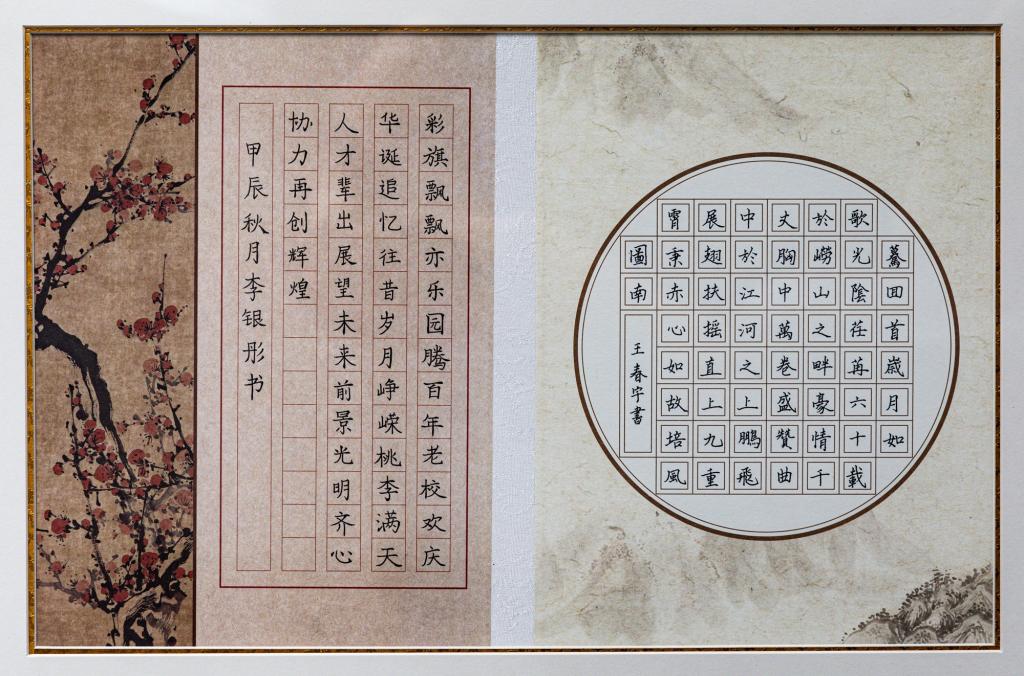 驀囬首歲月如
歌光陰荏苒六十載
於嶗山之畔豪情千
丈胸中萬卷盛贊曲
中於江河之上鵬飛
展翅扶摇直上九重
霄秉赤心如故培風
圖南
王春宇書
彩旗飘飘亦乐园腾百年老校欢庆
华诞追忆往昔岁月峥嵘桃李满天
人才辈出展望未来前景光明齐心
协力再创辉煌
甲辰秋月李银彤书